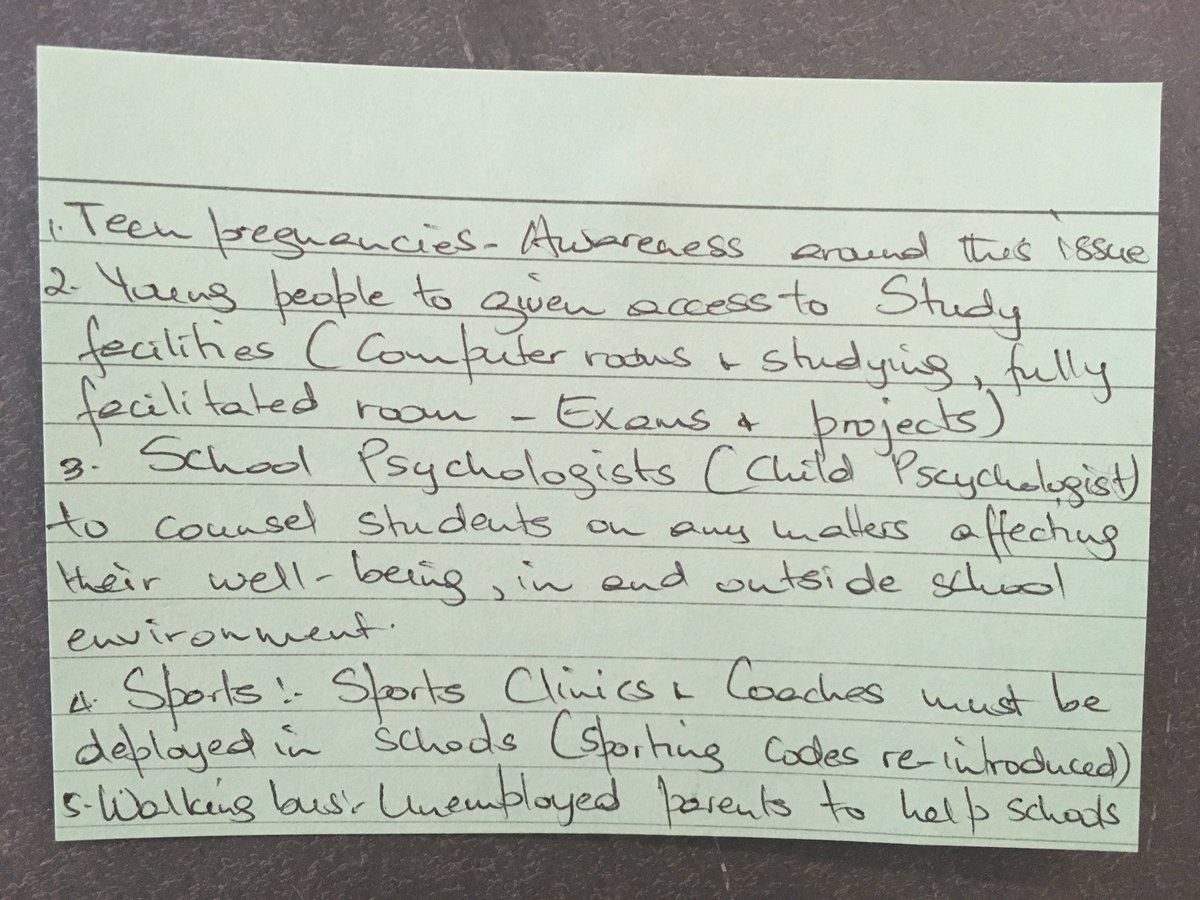 1. Teen pregnancies - Awareness around this issue
2. Young people to given access to Study
facilities (Computer rooms & studying, fully
facilitated room - Exams & projects)
3. School Psychologists (Child Pscychologist)
to counsel students on any matters affecting
their well-being, in and outside school
environment.
4. Sports:- Sports Clinics & Coaches must be
deployed in schools (Sporting Codes re-introduced)
5. Walking bus:- Unemployed parents to help schools